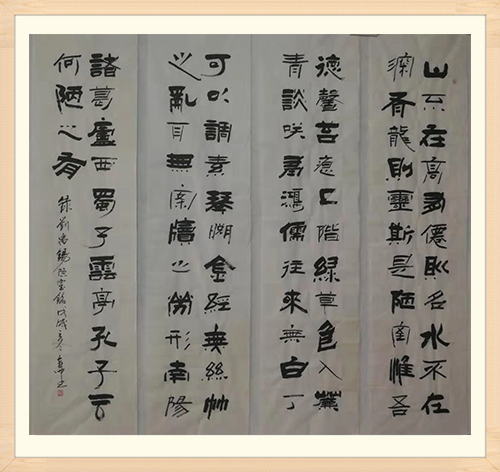 山不在高有僊則名水不在
深有龍則靈斯是陋室惟吾
德馨苔痕上階綠草色入簾
青談咲有鴻儒往來無白丁
可以調素琴閱金經無絲竹
之亂耳無案牘之勞形南陽
諸葛廬西蜀子雲亭孔子云
何陋之有
錄劉禹錫陋室銘戊戌冬